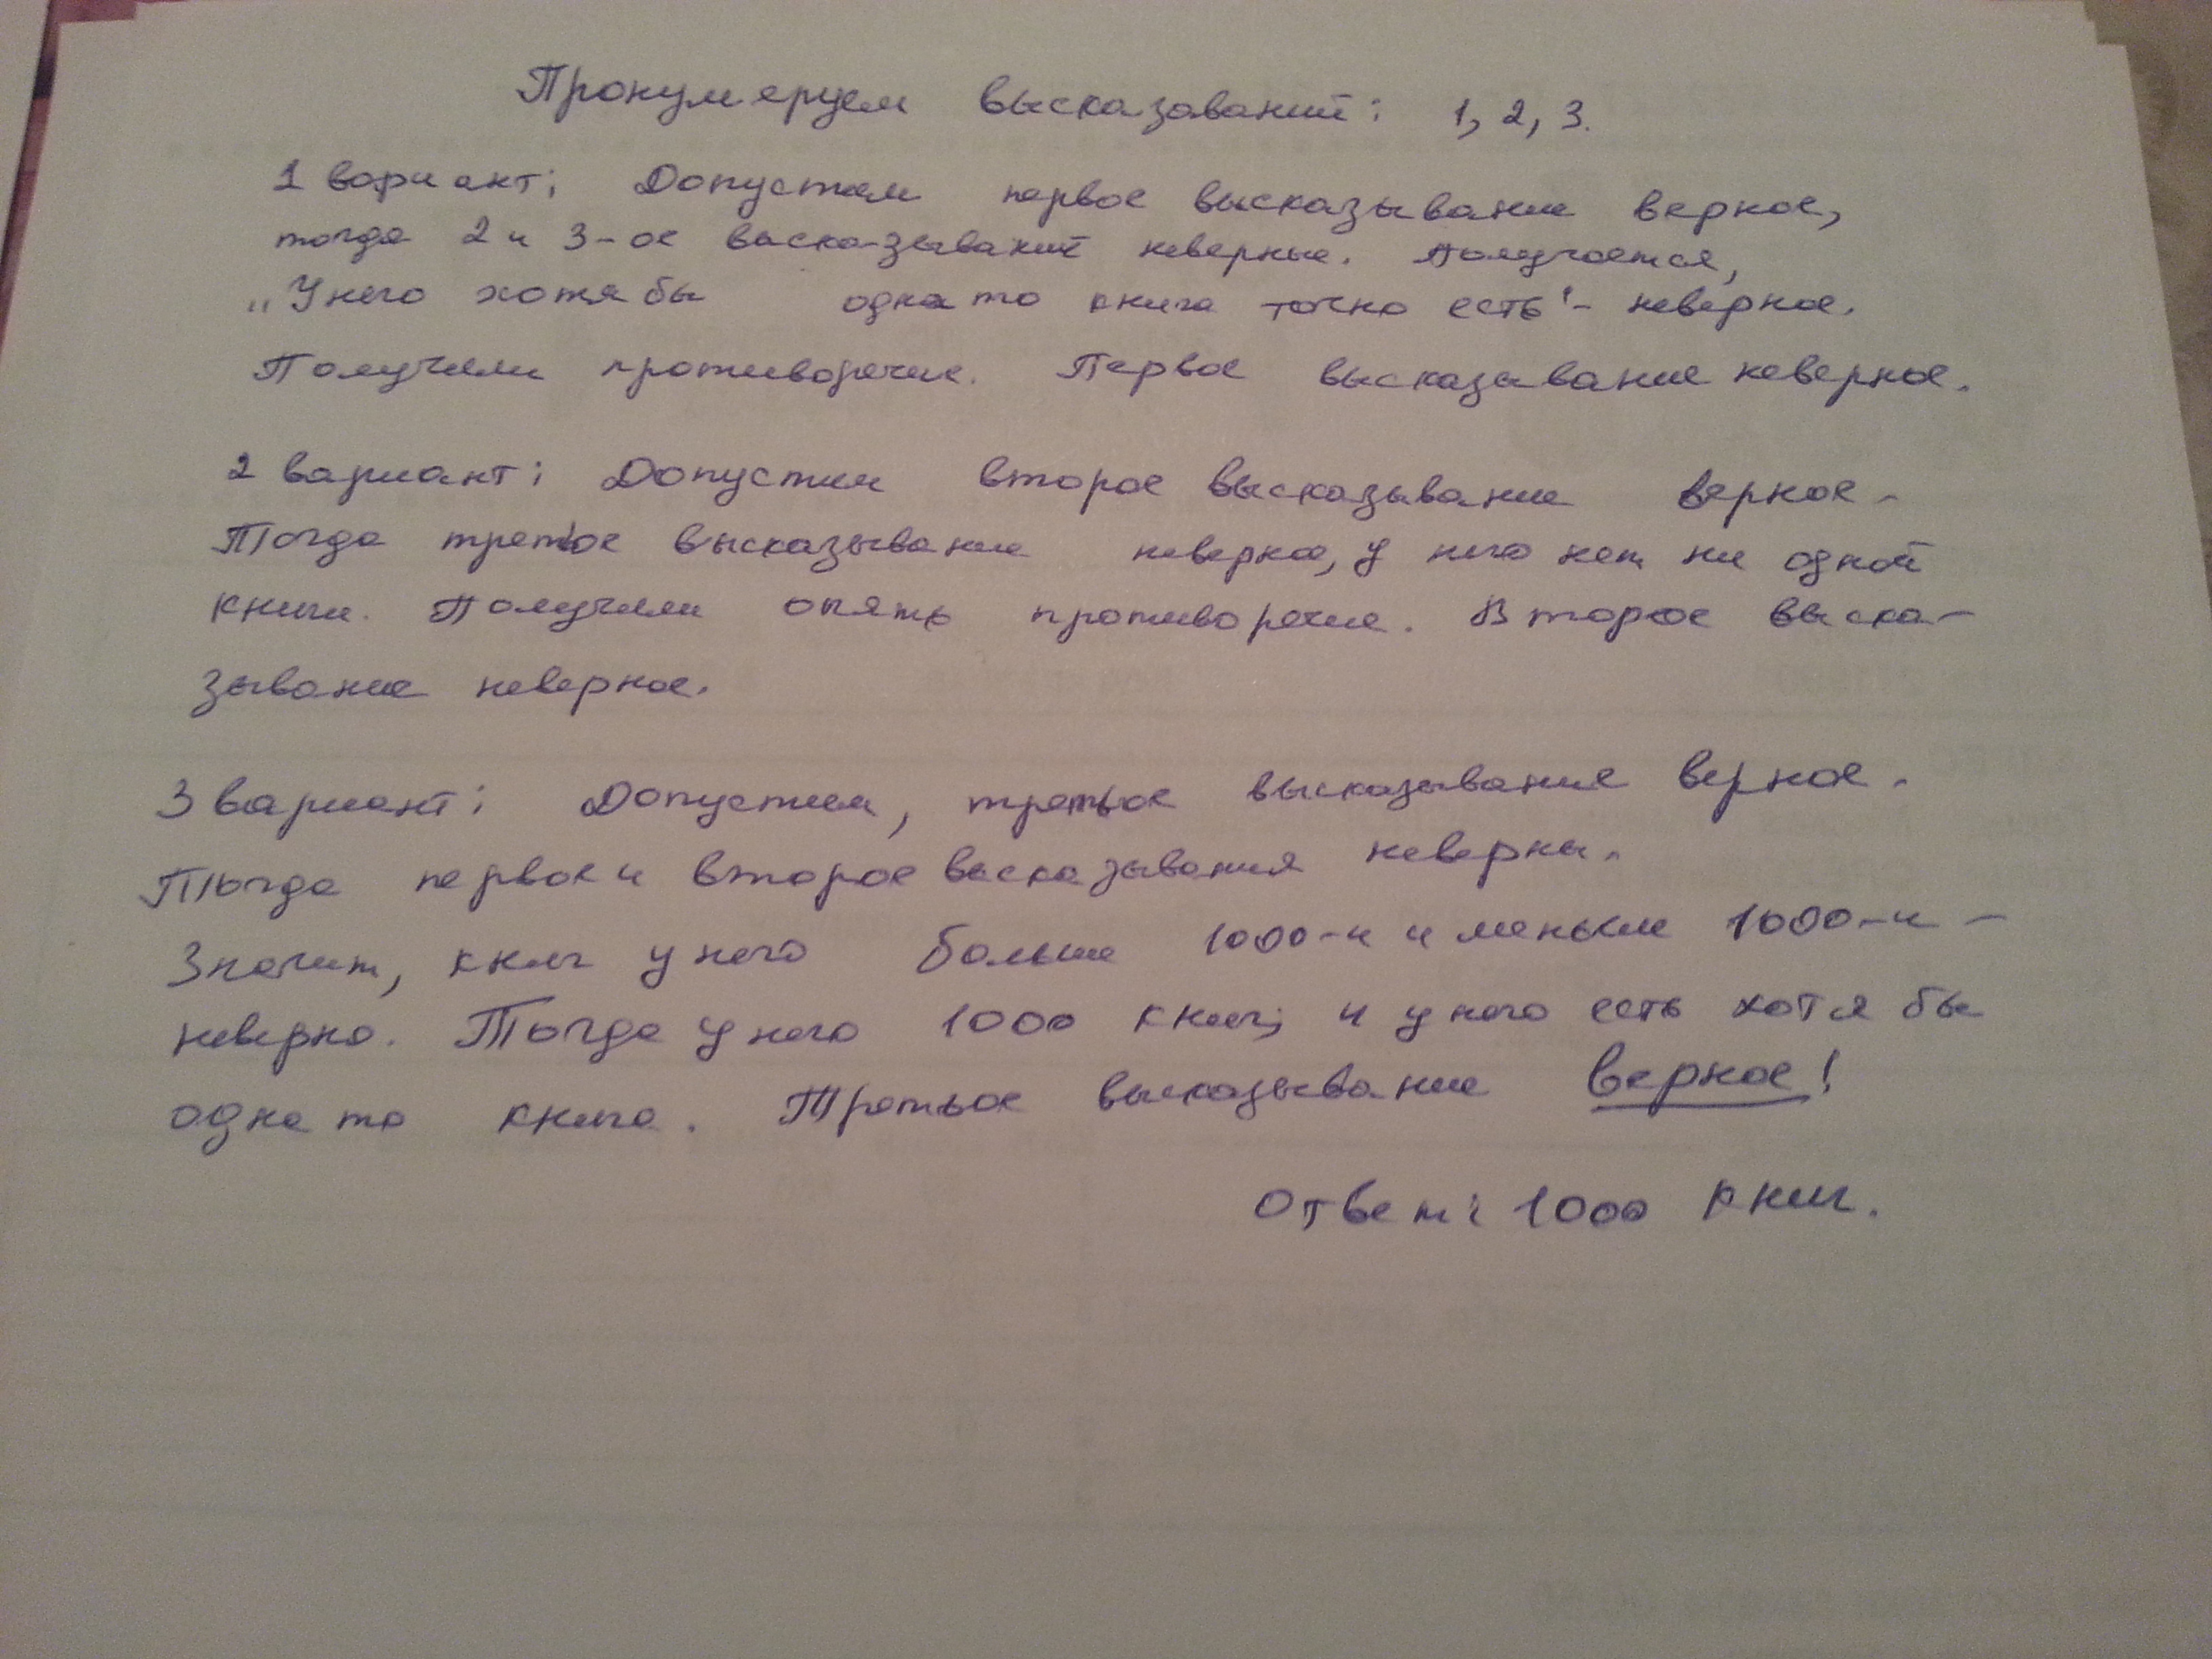 Пронумеруем высказаваний: 1, 2, 3.
1 вариант: Допустим первое высказывание верное,
тогда 2 и 3-ое высказываний неверные. Получается,
"У него хотя бы одна то книга точно есть" - неверное.
Получили противоречие. Первое высказывание неверное.
2 вариант: Допустим второе высказывание верное.
Тогда третье высказывание неверное, у него нет ни одной
книги. Получили опять противоречие. Второе выска-
зывание неверное.
3 вариант: Допустим, третье высказывание верное.
Тогда первое и второе высказывания неверны.
Значит, книг у него больше 1000-и и меньше 1000-и -
неверно. Тогда у него 1000 книг, и у него есть хотя бы
одна то книга. Третье высказывание верное!
Ответ: 1000 книг.